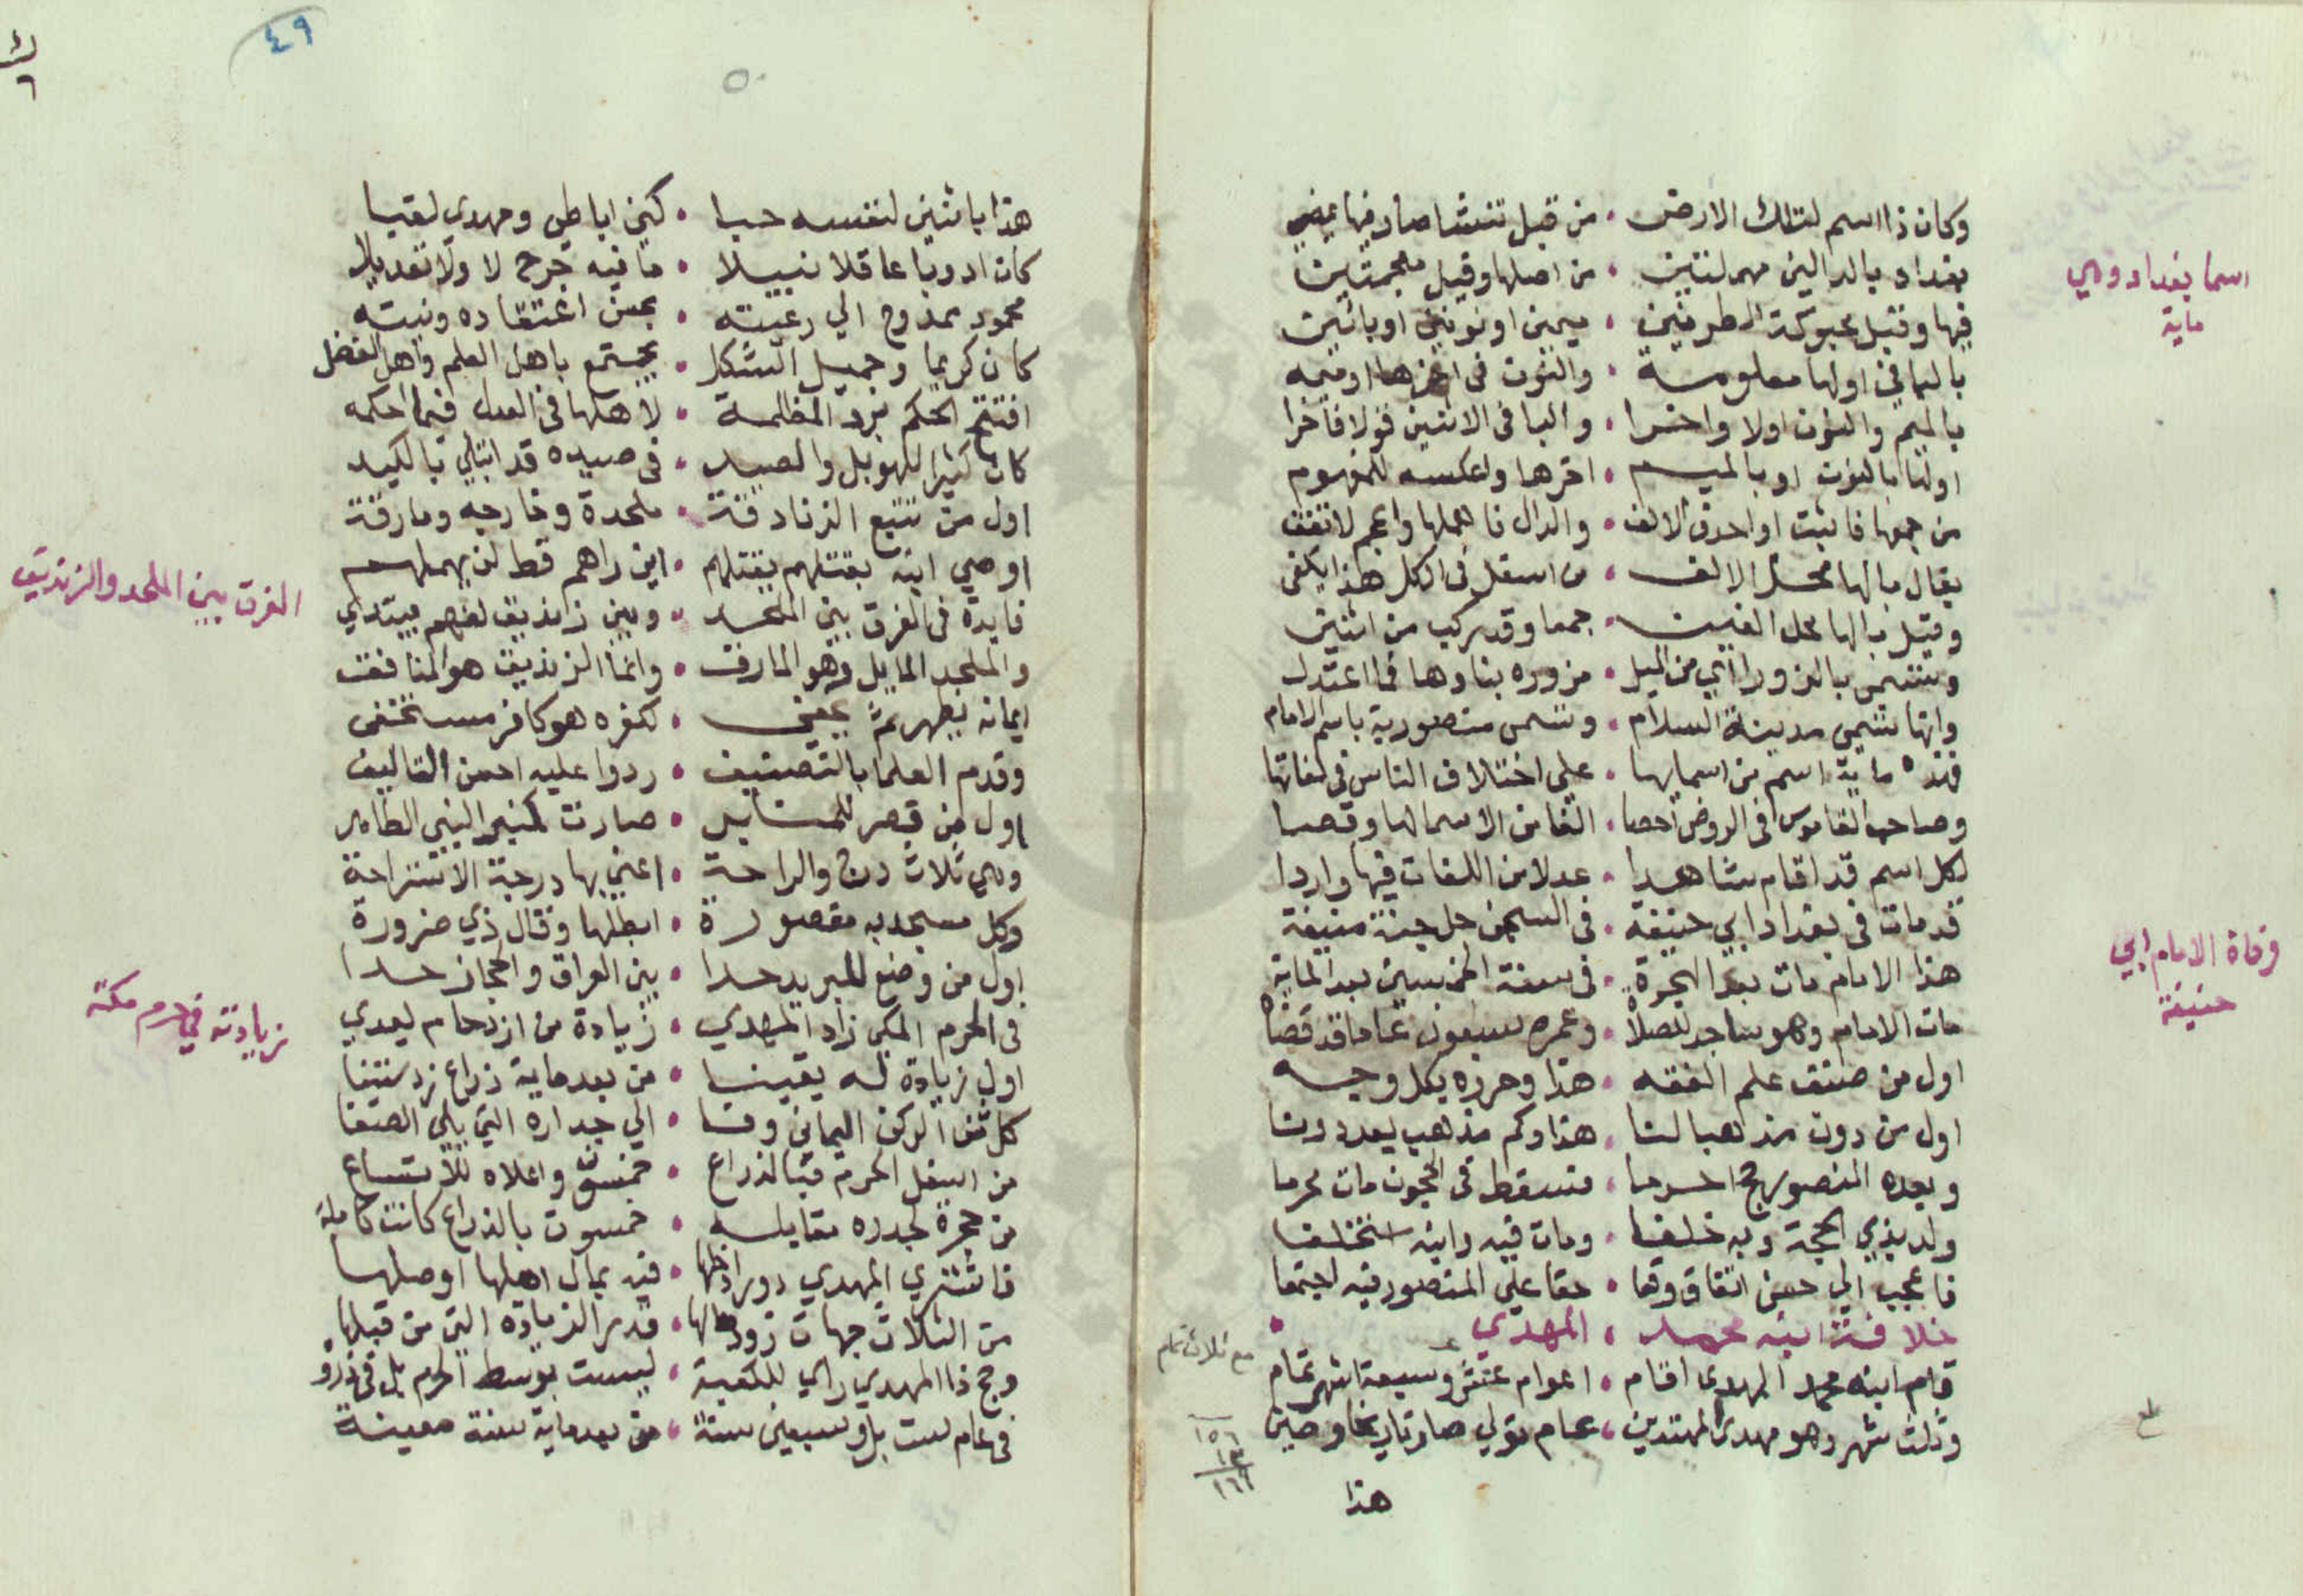 وكان ذا اسم لتلك الارض • من قبل تنشا صار فيها
بغداد بالدالين مهملتين • من اصلها وقيل معجمتين
فيها وقيل محبوكة الطرفين • ميمين او نونين او باثنين
بالبا في اولها معلومة • والنون في اخرها او ميمه
بالميم والنون اولا واخرا • والبا في الاثنين قولا فاخرا
اولها بالنون او بالميم • اخرها واعكسه للمفهوم
من جمعها فاثبت او احذف الالف • والدال فاهملها واعجم لا تقف
يقال بالها محل الالف • من اسفل في الكل هذا يكفي
وقيل بالها محل الغين • جمعا وقد يركب من اثنين
وتسمى بالزورا اي من الميل • مزوره بناوها فما اعتدل
وانها تسمى مدينة السلام • وتسمى منصورية باسم الامام
فهذه ماية اسم من اسمايها • على اختلاف الناس في لغاتها
وصاحب القاموس في الروض احصا • الفا من الاسما لها وقصا
لكل اسم قد اقام شاهدا • عدلا من اللغات فيها واردا
قد مات في بغداد ابي حنيفة • في السجن حل جنة منيفة
هذا الامام مات بعد الهجرة • في سنة الخمسين بعد الماية
مات الامام وهو ساجد للصلاة • وعمره سبعون عاما قد قضاه
اول من صنف علم الفقه • هذا وحرره بكل وجه
اول من دون مذهبا لنا • هذا وكم مذهب بعد دونا
وبعده المنصور حج احرما • فسقط في الحجون مات محرما
ولد بذي الحجة وبه خلفا • ومات فيه وابنه استخلفا
فاعجب الي حسن اتفاق وقعا • حقا علي المنصور فيه اجتمعا
خلافة ابنه محمد • المهدي
قام ابنه محمد المهدي اقام • اعوام عشر وسبعة اشهر تمام
وثلث شهر وهو مهدي المهتدين • عام تولي صار تاريخا وحين
هذا
اسما بغداد وهي
ماية
وفاة الامام ابي
حنيفة
مع ثلاث تمام
٤٩
٥٠
هذا باثنين لنفسه حبا • كني ابا طي ومهدي لقبا
كان اديبا عاقلا نبيلا • ما فيه جرح لا ولا تعديلا
محمود ممدوح الي رعيته • بحسن اعتقاده ونيته
كان كريما وجميل الشكل • يجتمع باهل العلم واهل الفضل
افتتح الحكم برد المظلمة • لاهلها في العدل فيما احكمه
كان كثيرا للهو بل والصيد • في صيده قد ابتلي بالكيد
اول من تتبع الزنادقة • ملحدة وخارجه ومارقة
اوصي ابنه بقتلهم بقتلهم • اين راهم قط لن يهملهم
فايدة في الفرق بين الملحد • وبين زنديق لفهم مبتدي
والملحد المايل وهو المارق • وانما الزنديق هو المنافق
ايمانه يظهر ثم يخفي • لكفره هو كافر مستخفي
وقدم العلما بالتصنيف • ردوا عليه احسن التاليف
اول من قصر للمنابر • صارت كمنبر النبي الطاهر
وهي ثلاث درج والراحة • اعني بها درجة الاستراحة
وكل مسجد به مقصورة • ابطلها وقال ذي ضرورة
اول من وضع للبريد حدا • بين العراق والحجاز حدا
في الحرم المكي زاد المهدي • زيادة من ازدحام يعدي
اول زيادة له يقينا • من بعد ماية ذراع زد ستينا
كل من الركن اليماني وفا • الي جداره التي يلي الصفا
من اسفل الحرم قبالذراع • خمسون واعلاه للاتساع
من حجرة لجدره مقابله • خمسون بالذراع كانت كاملة
فاشتري المهدي دورا ادخلها • فيه بمال اهلها اوصلها
من الثلاث جهات زودها لها • قدر الزيادة التي من قبلها
وحج ذا المهدي راي للكعبة • ليست بوسط الحرم بل في
في عام ست بل وسبعين سنة • من بعد ماية سنة معينة
الفرق بين الملحد والزنديق
زيادته في حرم مكة